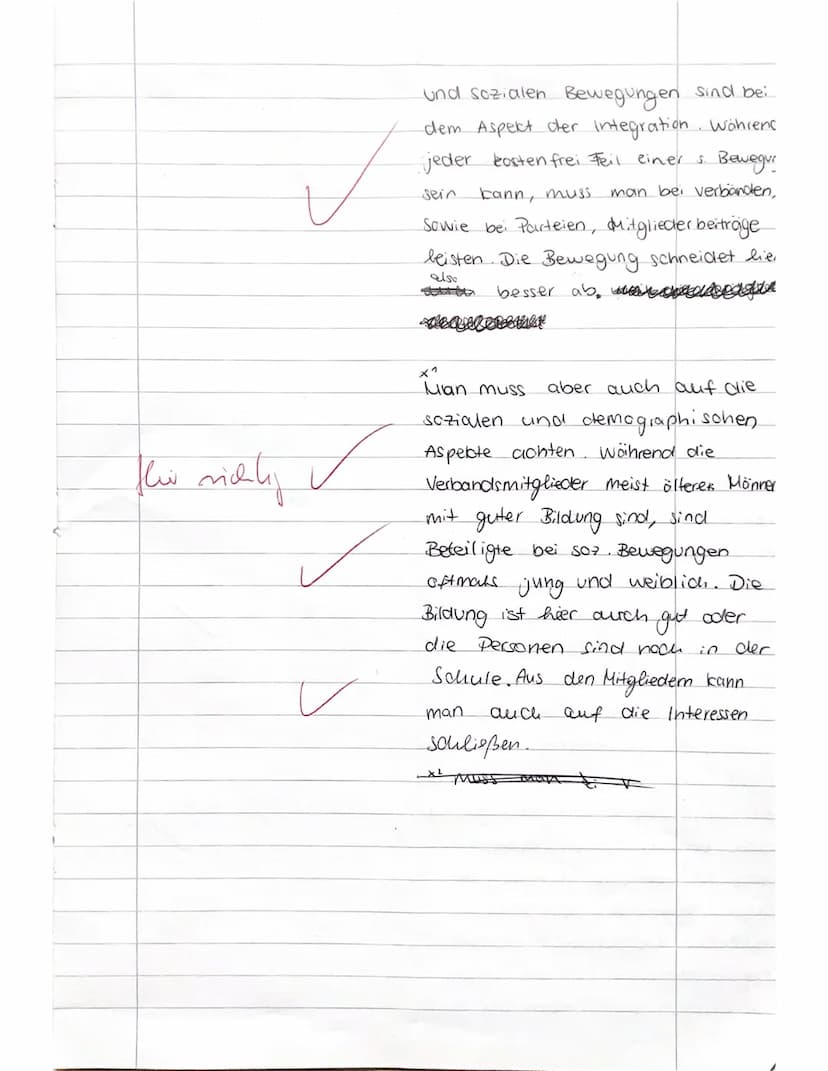 und sozialen Bewegungen sind bei
dem Aspekt der Integration. Während
jeder kostenfrei Teil einer s. Bewegu
sein kann, muss man bei verbänden,
sowie bei Parteien, Mitgliederbeiträge
leisten. Die Bewegung schneidet hie
also
besser ab.
x1
Man muss aber auch auf die
sozialen und demographischen
Aspekte achten. Während die
Verbandsmitglieder meist älteren Männer
mit guter Bildung sind, sind
Beteiligte bei soz. Bewegungen
oftmals jung und weiblich. Die
Bildung ist hier auch gut oder
die Personen sind noch in der
Schule. Aus den Mitgliedern kann
man auch auf die Interessen
schließen.
muss man
richtig